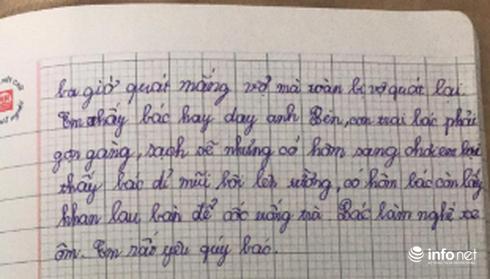 ba giờ quát mắng vợ mà toàn bị vợ quát lại.
Em thấy bác hay dạy anh Bền, con trai bác phải
gọn gàng, sạch sẽ nhưng có hôm sang chơi em lại
thấy bác dỉ mũi bôi lên tường, có hôn bác còn lấy
khan lau bàn để cốc uống trà Bác làm nghề xe
ôm. Em rất yêu quý bác.
infonet